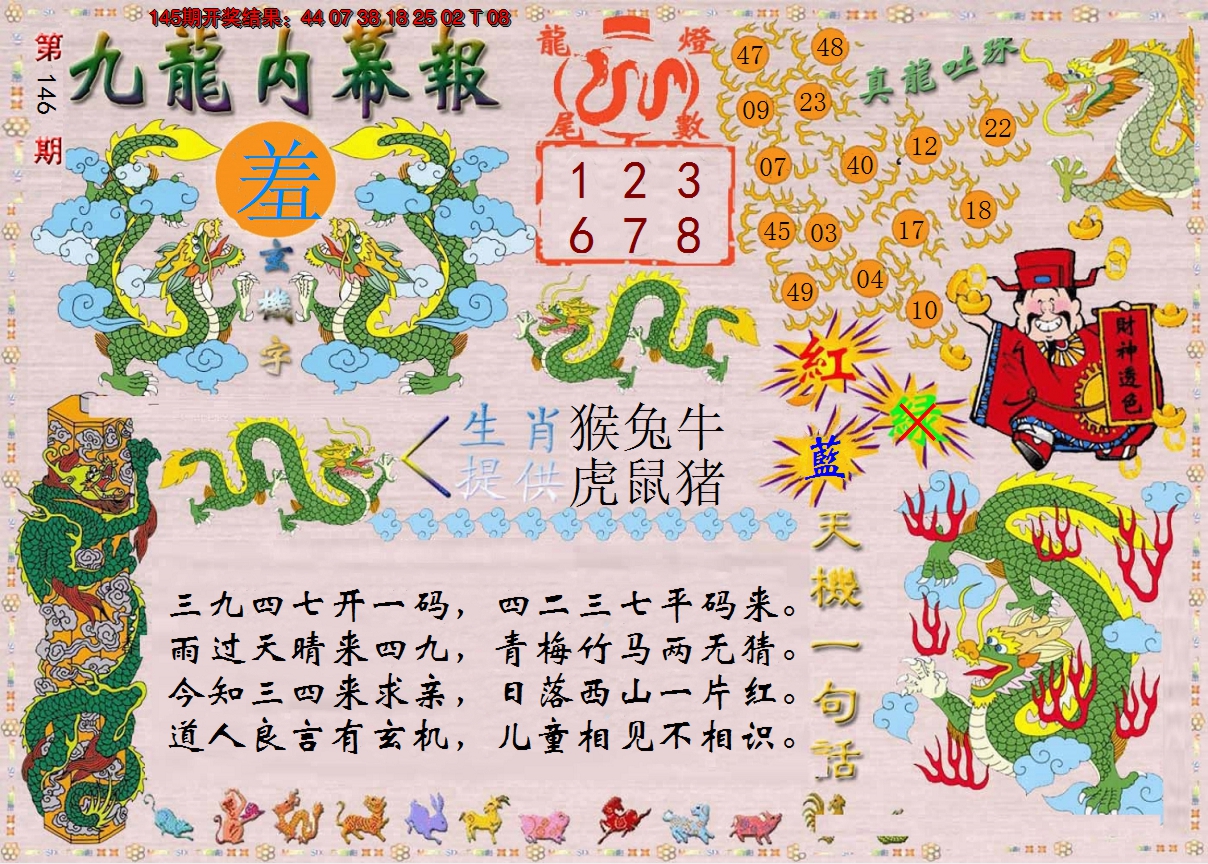 145期开奖结果：44 07 38 18 25 02 T 08
第146期
九龍内幕報
羞
玄機字
龍燈
尾數
1 2 3
6 7 8
真龍吐珠
47 48
09 23
12 22
07 40
45 03 17 18
49 04 10
紅
绿
藍
財神透色
生肖提供
猴兔牛
虎鼠猪
天機一句話
三九四七开一码，四二三七平码来。
雨过天晴来四九，青梅竹马两无猜。
今知三四来求亲，日落西山一片红。
道人良言有玄机，儿童相见不相识。